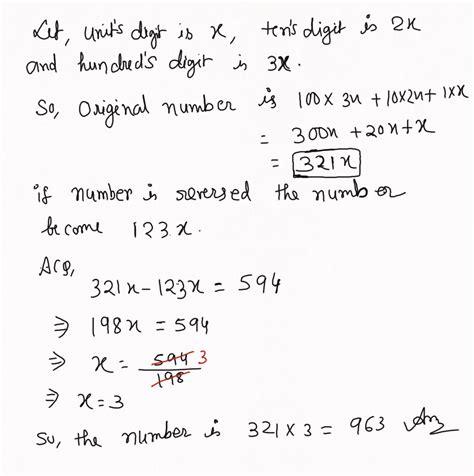 Let, unit's digit is x, ten's digit is 2x
and hundred's digit is 3x.
So, Original number is 100 x 3x + 10x2x + 1xx
= 300x + 20x + x
= 321x
if number is reversed the number
become 123x.
ACQ,
321x - 123x = 594
⇒ 198x = 594
⇒ x = 594/198 3
⇒ x = 3
So, the number is 321 x 3 = 963 Ans